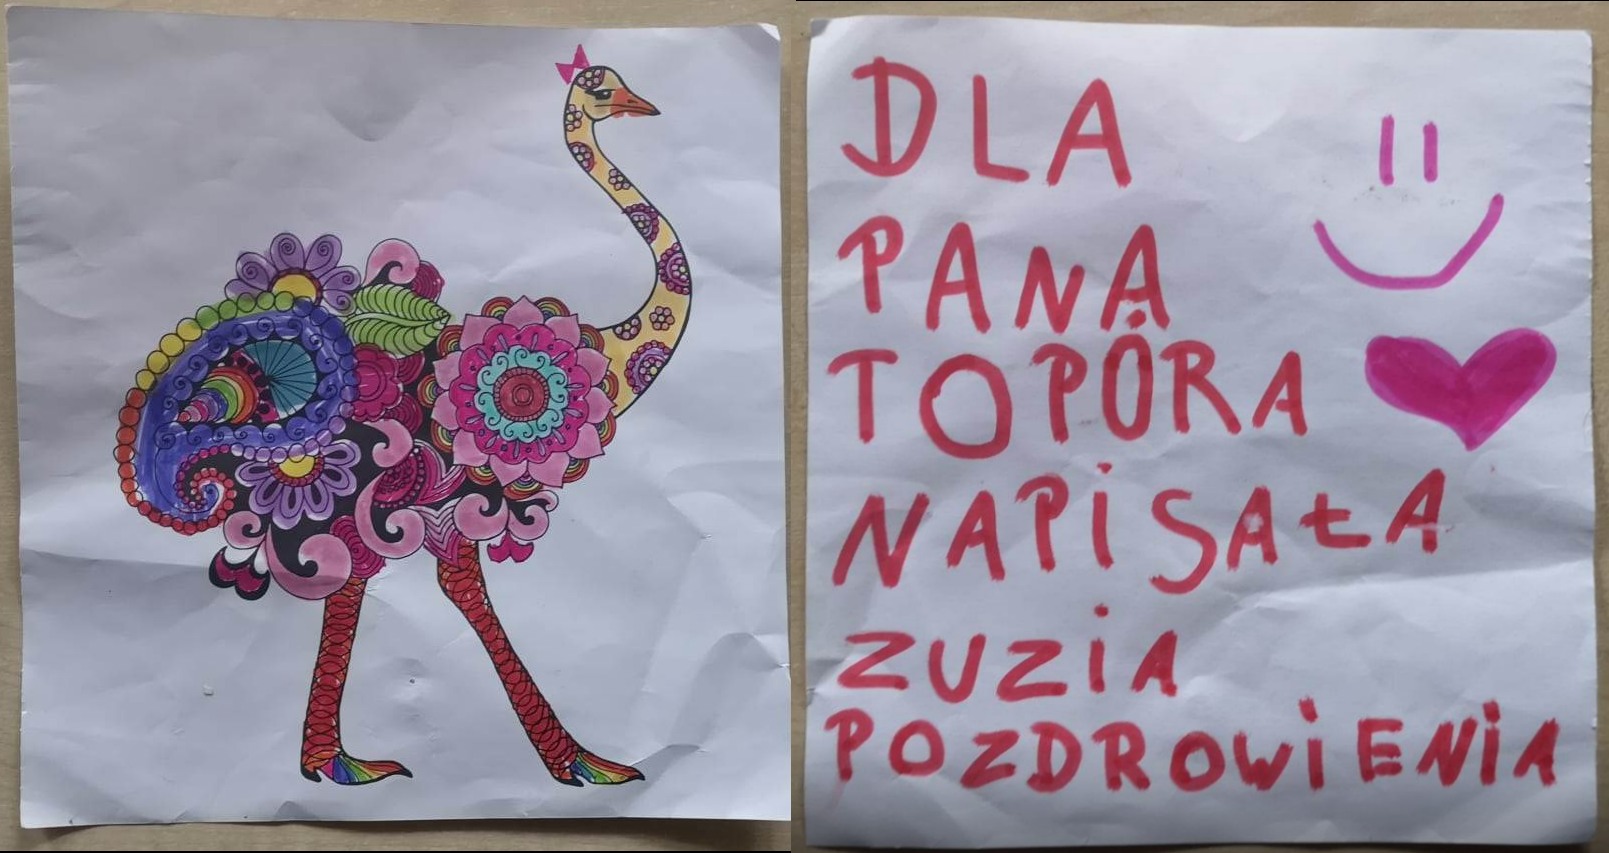 DLA
PANA
TOPÓRA
NAPiSAŁA
ZUZiA
POZDROWiENiA